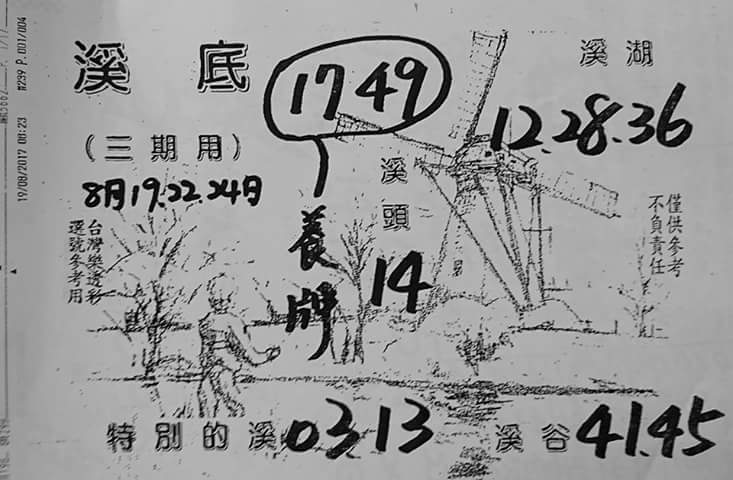 溪底
(三期用)
8月19.22.24日
台灣樂透彩
選號參考用
17 49
養牌
溪頭
14
溪湖
12.28.36
僅供參考
不負責任
特別的溪 03 13
溪谷 41.45
19/08/2017 08:23
M239 P.001/004